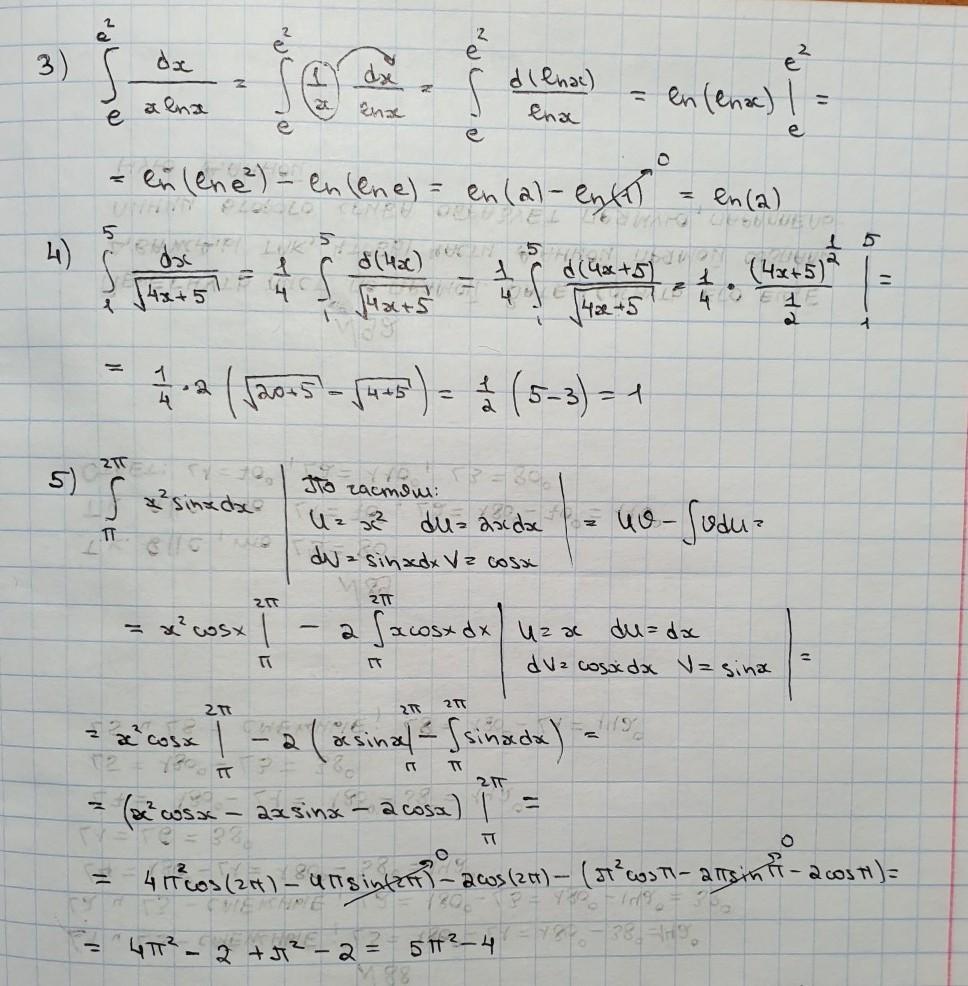 3) ∫_e^{e²} dx/(x ln x) = ∫_e^{e²} (1/x) dx/(ln x) = ∫_e^{e²} d(ln x)/(ln x) = ln(ln x) |_e^{e²} =
= ln(ln e²) - ln(ln e) = ln(2) - ln(1) → 0 = ln(2)
4) ∫_1^5 dx/√(4x+5) = 1/4 ∫_1^5 d(4x)/√(4x+5) = 1/4 ∫_1^5 d(4x+5)/√(4x+5) = 1/4 · (4x+5)^{1/2}/(1/2) |_1^5 =
= 1/4 · 2 (√(20+5) - √(4+5)) = 1/2 (5-3) = 1
5) ∫_π^{2π} x² sinx dx | По частям: U = x² du = 2xdx dv = sinxdx V = cosx | = UV - ∫Vdu =
= x² cosx |_π^{2π} - 2 ∫_π^{2π} x cosx dx | U = x du = dx dV = cosx dx V = sinx | =
= x² cosx |_π^{2π} - 2 ( x sinx |_π^{2π} - ∫_π^{2π} sinxdx ) =
= (x² cosx - 2x sinx - 2cosx) |_π^{2π} =
= 4π² cos(2π) - 4π sin(2π) → 0 - 2cos(2π) - (π² cosπ - 2π sinπ → 0 - 2cosπ) =
= 4π² - 2 + π² - 2 = 5π² - 4